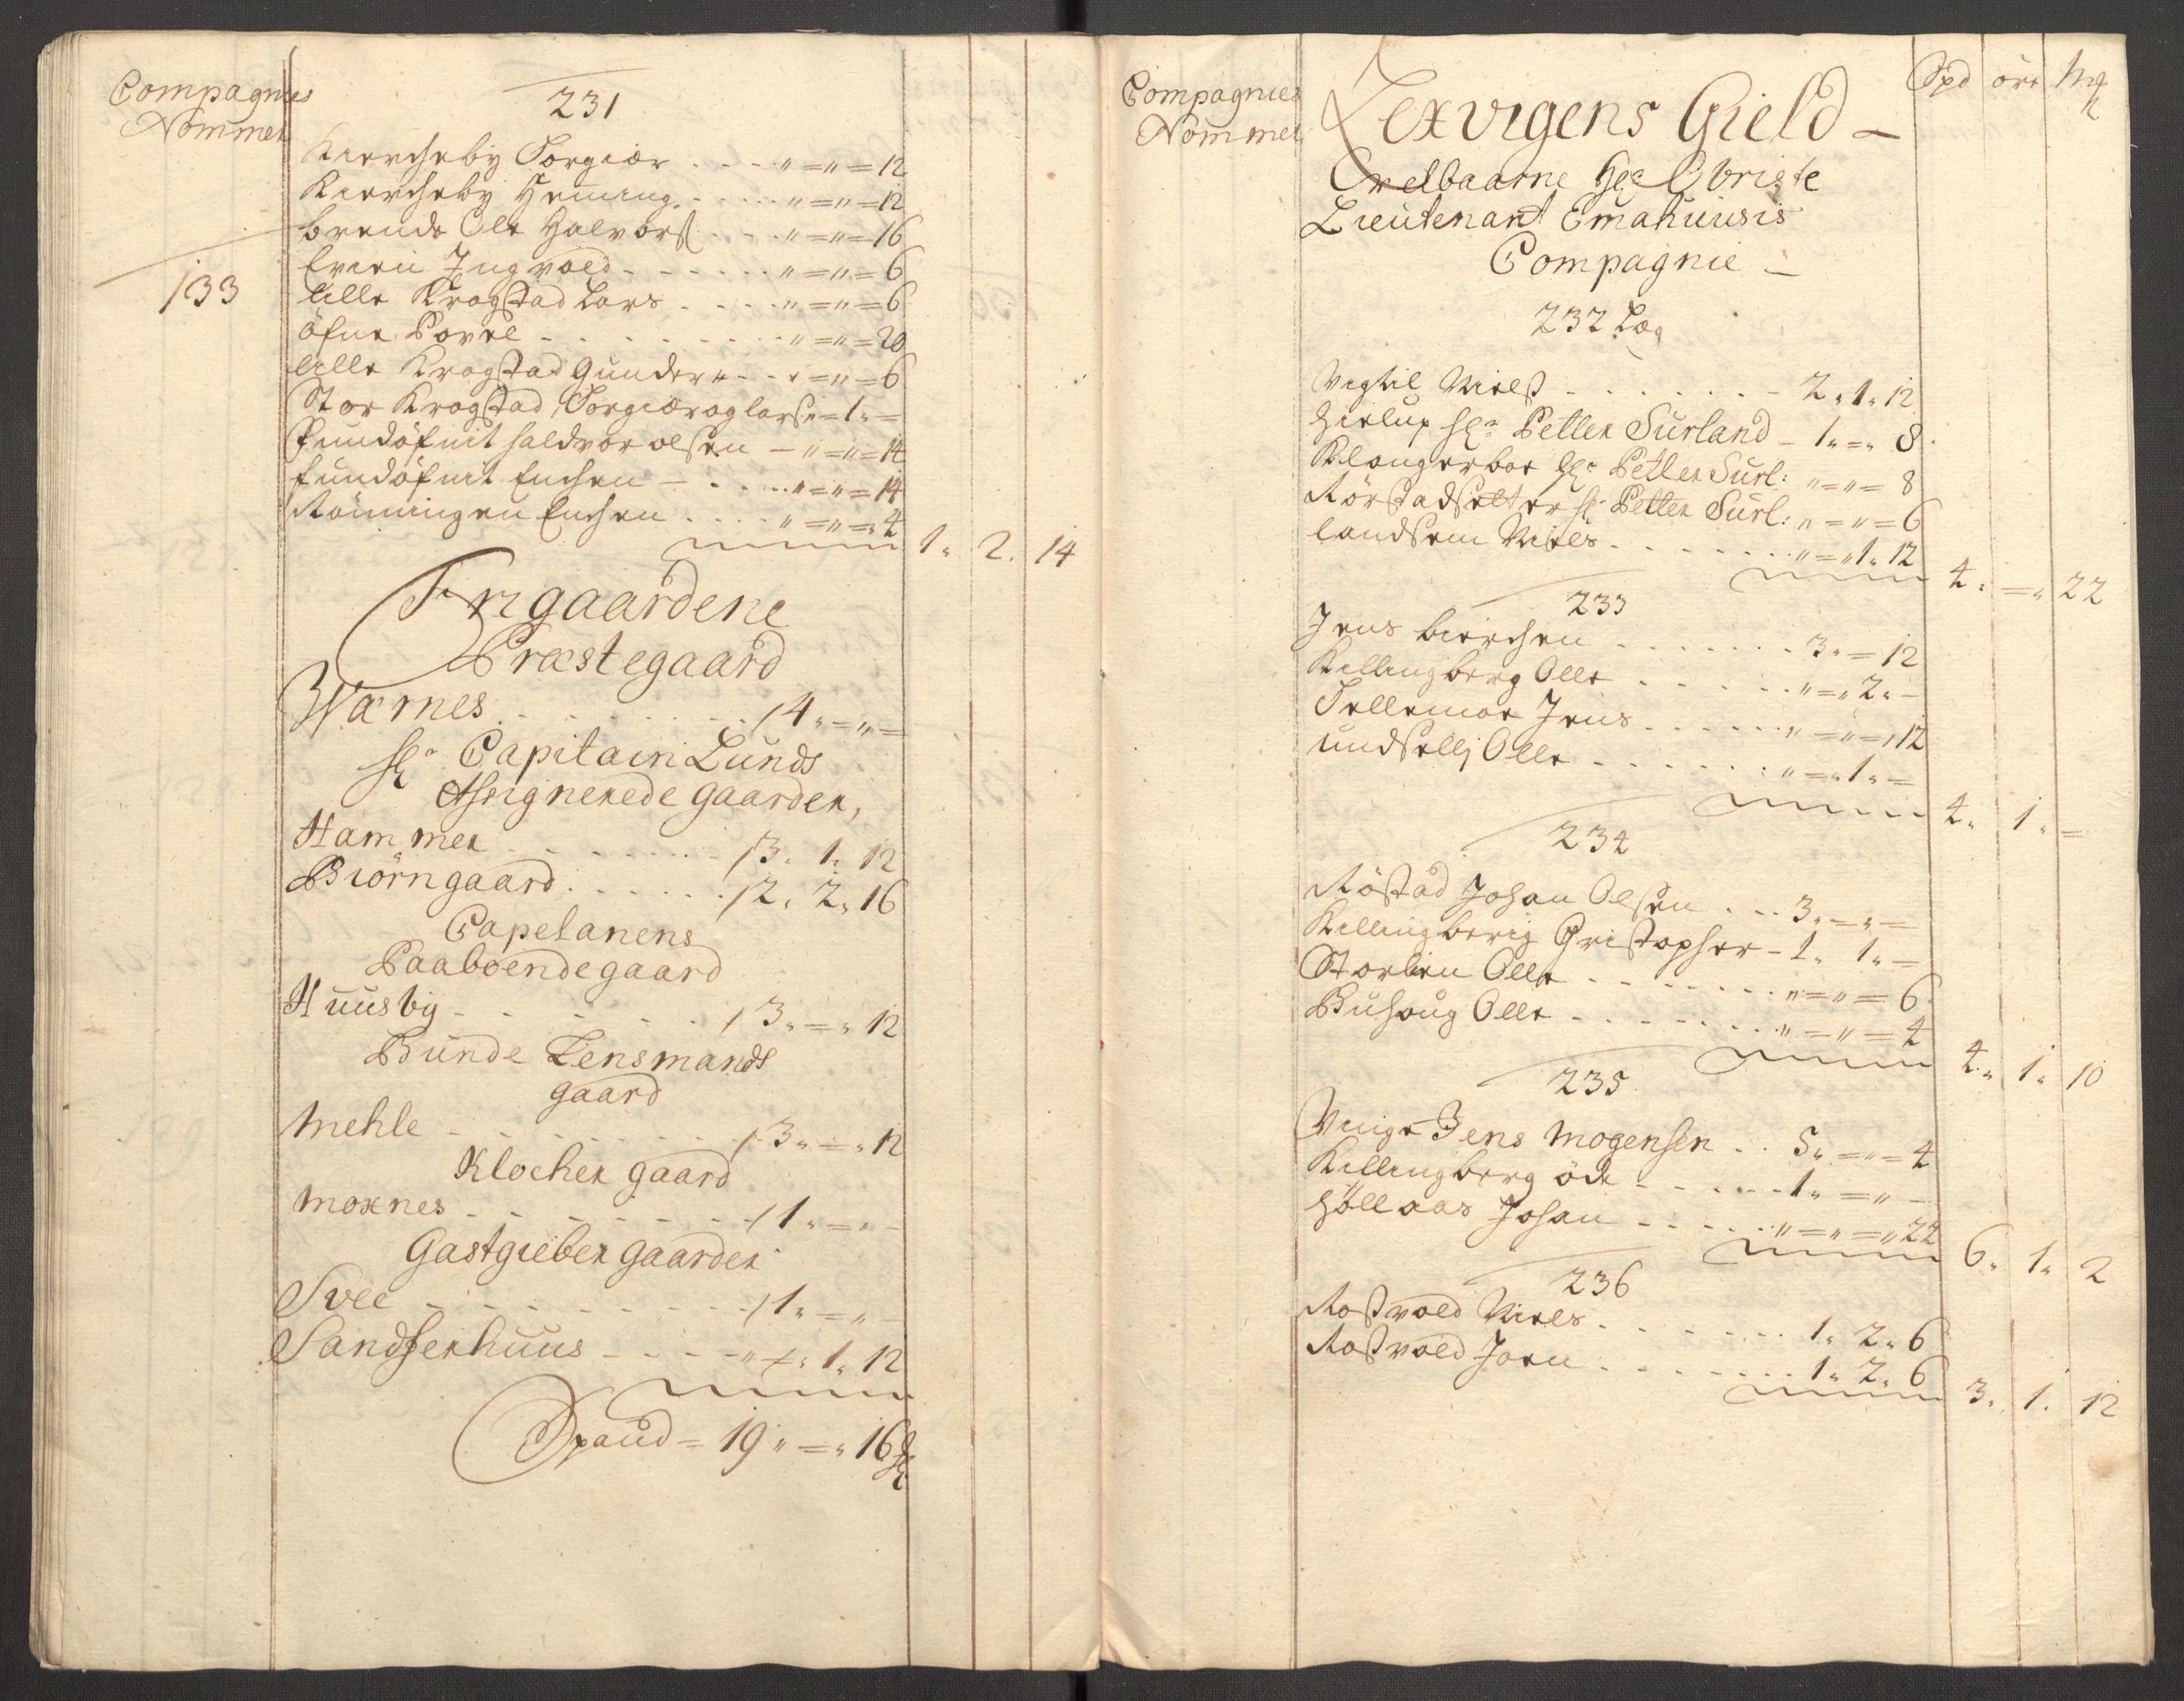 Compagnies
Nommer
231
Kierckeby Torgier - - - " = " = 12
Kierckeby Heming - - - " = " = 12
brende Ole Halvors - - " = " = 16
Evien Ingvold - - - - - " = " = 6
133
lille Krogstad Lars - - - " = " = 6
öfne Povel - - - - - " = " = 20
lille Krogstad Gunder - - " = " = 6
Stor Krogstad, Torgier og lars " = 1 " =
haldvor olsen - " = " = 14
" = " = 14
Rönningen - - - " = " = 4
1 " 2 " 14
Frigaardene
Præstegaard
Wærnes - - - - - / 4 " = " =
Sl: Capitain Lunds
Assignerede gaarder,
Hammer - - - - - / 3 " 1 " 12
Biörngaard - - - - / 2 " 2 " 16
Capelanens
Paaboende gaard
Huusby - - - - - / 3 " = " 12
Bunde Lensmands
gaard
Mehle - - - - - / 3 " = " 12
Klocker gaard
Moxnes - - - - - / 1 " = " -
Gastgieber gaarder
Svee - - - - - / 1 " = " -
Sandferhuus - - - - " / " 1 " 12
Spand = 19 " = " 16
Compagnies
Nommer
Spd öre Mk
Lexvigens Gield -
Velbaarne Hr: Obriste
Lieutenant Emahuusis
Compagnie -
232 Læg
Vigtil Niels - - - - - 2 " 1 " 12
Hielup Sl: Petter Surland - 1 " = " 8
Klongerboe Sl: Petter Surl: " = " = 8
Rörstadsetter Sl: Petter Surl: " = " = 6
landsem Niels - - - - " = " 1 " 12
4 " = " 22
233
Jens bierchen - - - - - 3 " = 12
Killingberg Olle - - - - " = " 2 " -
Tellemoe Jens - - - - " = " = " 12
undselli Olle - - - - " = " 1 " =
4 " 1 " =
234
Röstad Johan Olsen - - - 3 " = " =
Killingberig Christopher - 1 " 1 " =
Storlien Olle - - - - " = " = 6
Buhoug Olle - - - - - " = " = 4
4 " 1 " 10
235
Vinge Jens Mogensen - - 5 " = " = 4
Killingberg öde - - - - 1 " = " -
Höllaas Johan - - - - " = " = " 22
6 " 1 " 2
236
Rostvold Niels - - - - - 1 " 2 " 6
Rostvold Joen - - - - - 1 " 2 " 6
3 " 1 " 12